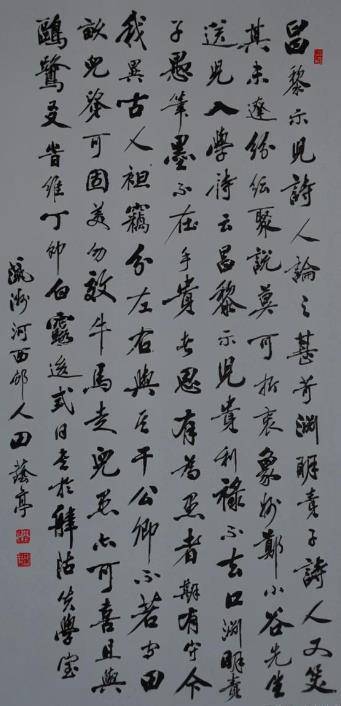 昌黎示兒詩人論之甚苛淵明責子詩人又笑
其未達紛紜聚說莫可折衷象州鄭小谷先生
送兒入學詩云昌黎示兒貴利祿不去口淵明責
子愚筆墨不在手賢者思有為愚者期有守今
我異古人袒分左右與其干公卿不若守田
畝兒可固美勿效牛馬走兒愚亦可喜且與
鷗鷺友 維丁卯白露後弍日書於失學室
河西邨人田蔭亭